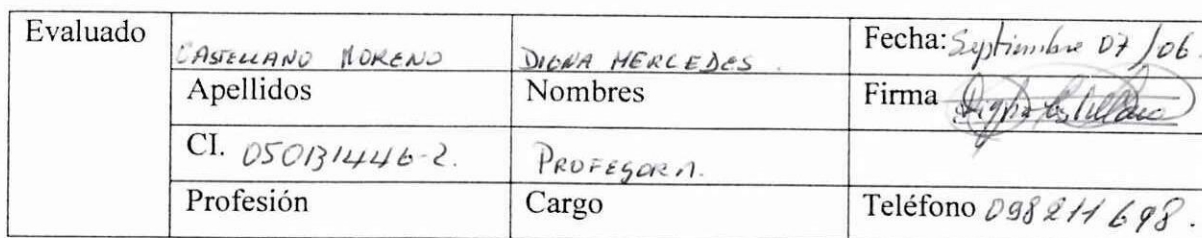 Evaluado CASTELLANO MORENO DIGNA MERCEDES. Fecha: Septiembre 07/06.
Apellidos Nombres Firma Digna Castellano
CI. 050131446-2. PROFESORA.
Profesión Cargo Teléfono 098211698.